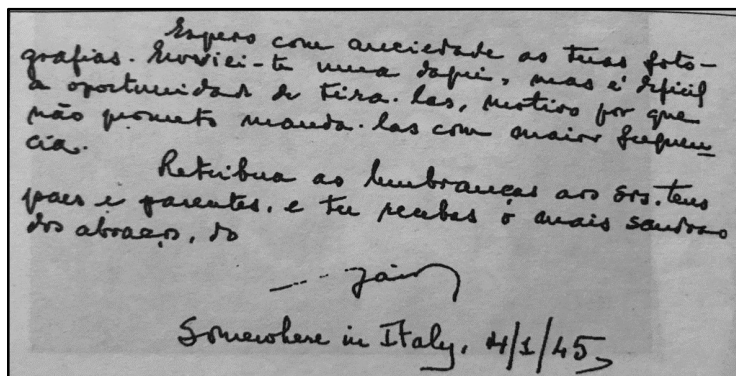 Espero com anciedade as tuas foto-
grafias. Enviei-te uma daqui, mas é dificil
a oportunidade de tira-las, motivo por que
não prometo manda-las com maior frequen
cia.
Retribua as lembranças aos srs. teus
paes e parentes, e tu recebas o mais saudoso
dos abraços, do
Jairo
Somewhere in Italy, 4/1/45